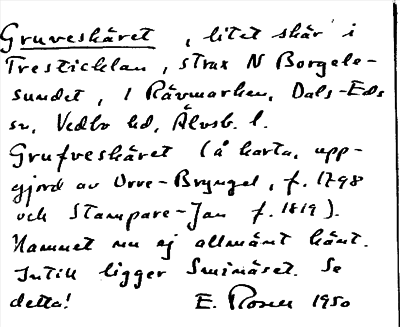 Gruveskäret, litet skär i
Tresticklan, strax N Borgele-
sundet, i Rävmarken, Dals-Eds
sn, Vedbo hd, Älvsb. l.
Grufveskäret (å karta, upp-
gjord av Orre-Bryngel, f. 1798
och Stampare-Jan f. 1819).
Namnet nu ej allmänt känt.
Intill ligger Sminäset. Se
detta! E. Rosell 1950